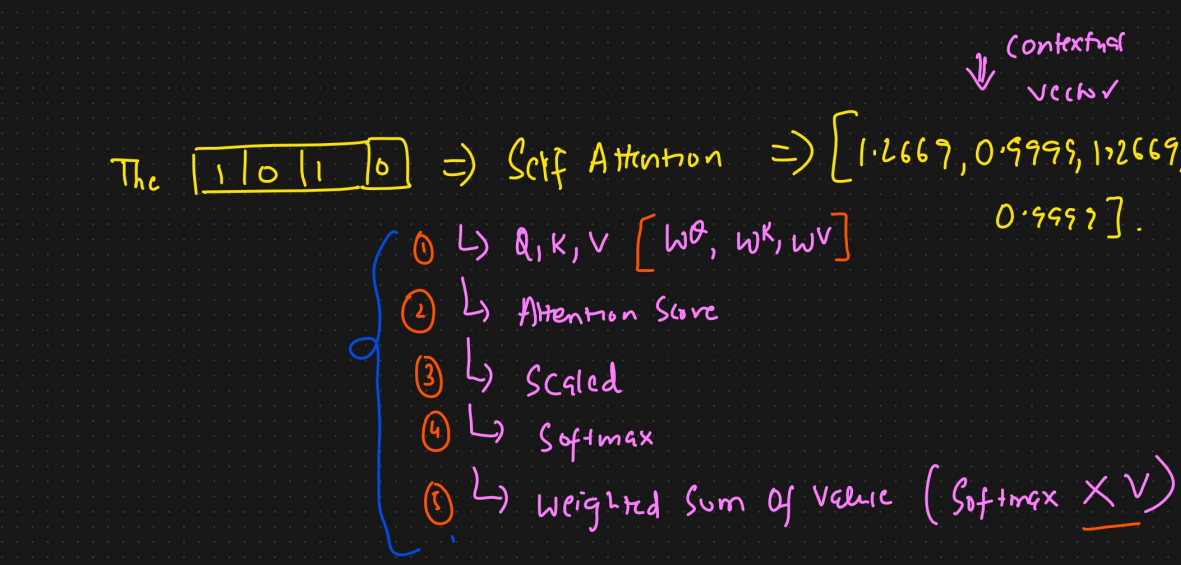 Contextual
vector
The 1 0 1 0 => Self Attention => [1.2669, 0.9999, 1.2669,
0.9999].
① ↳ Q, K, V [W^Q, W^K, W^V]
② ↳ Attention Score
③ ↳ Scaled
④ ↳ Softmax
⑤ ↳ Weighted Sum of Value (Softmax X V)